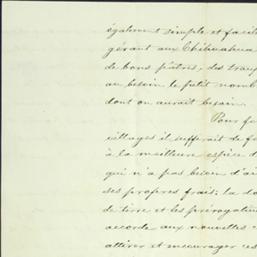 également simple et facile
gérant aux Chihuahua
de bons pâtres, des troup
au besoin le petit nomb
dont on aurait besoin.
Pour fo
villages il suffirait de f
à la meilleure espèce d
qui n'a pas bien d'ai
ses propres frais; la do
de terre et les prérogative
accorde aux nouvelles c
attirer et encourager ces